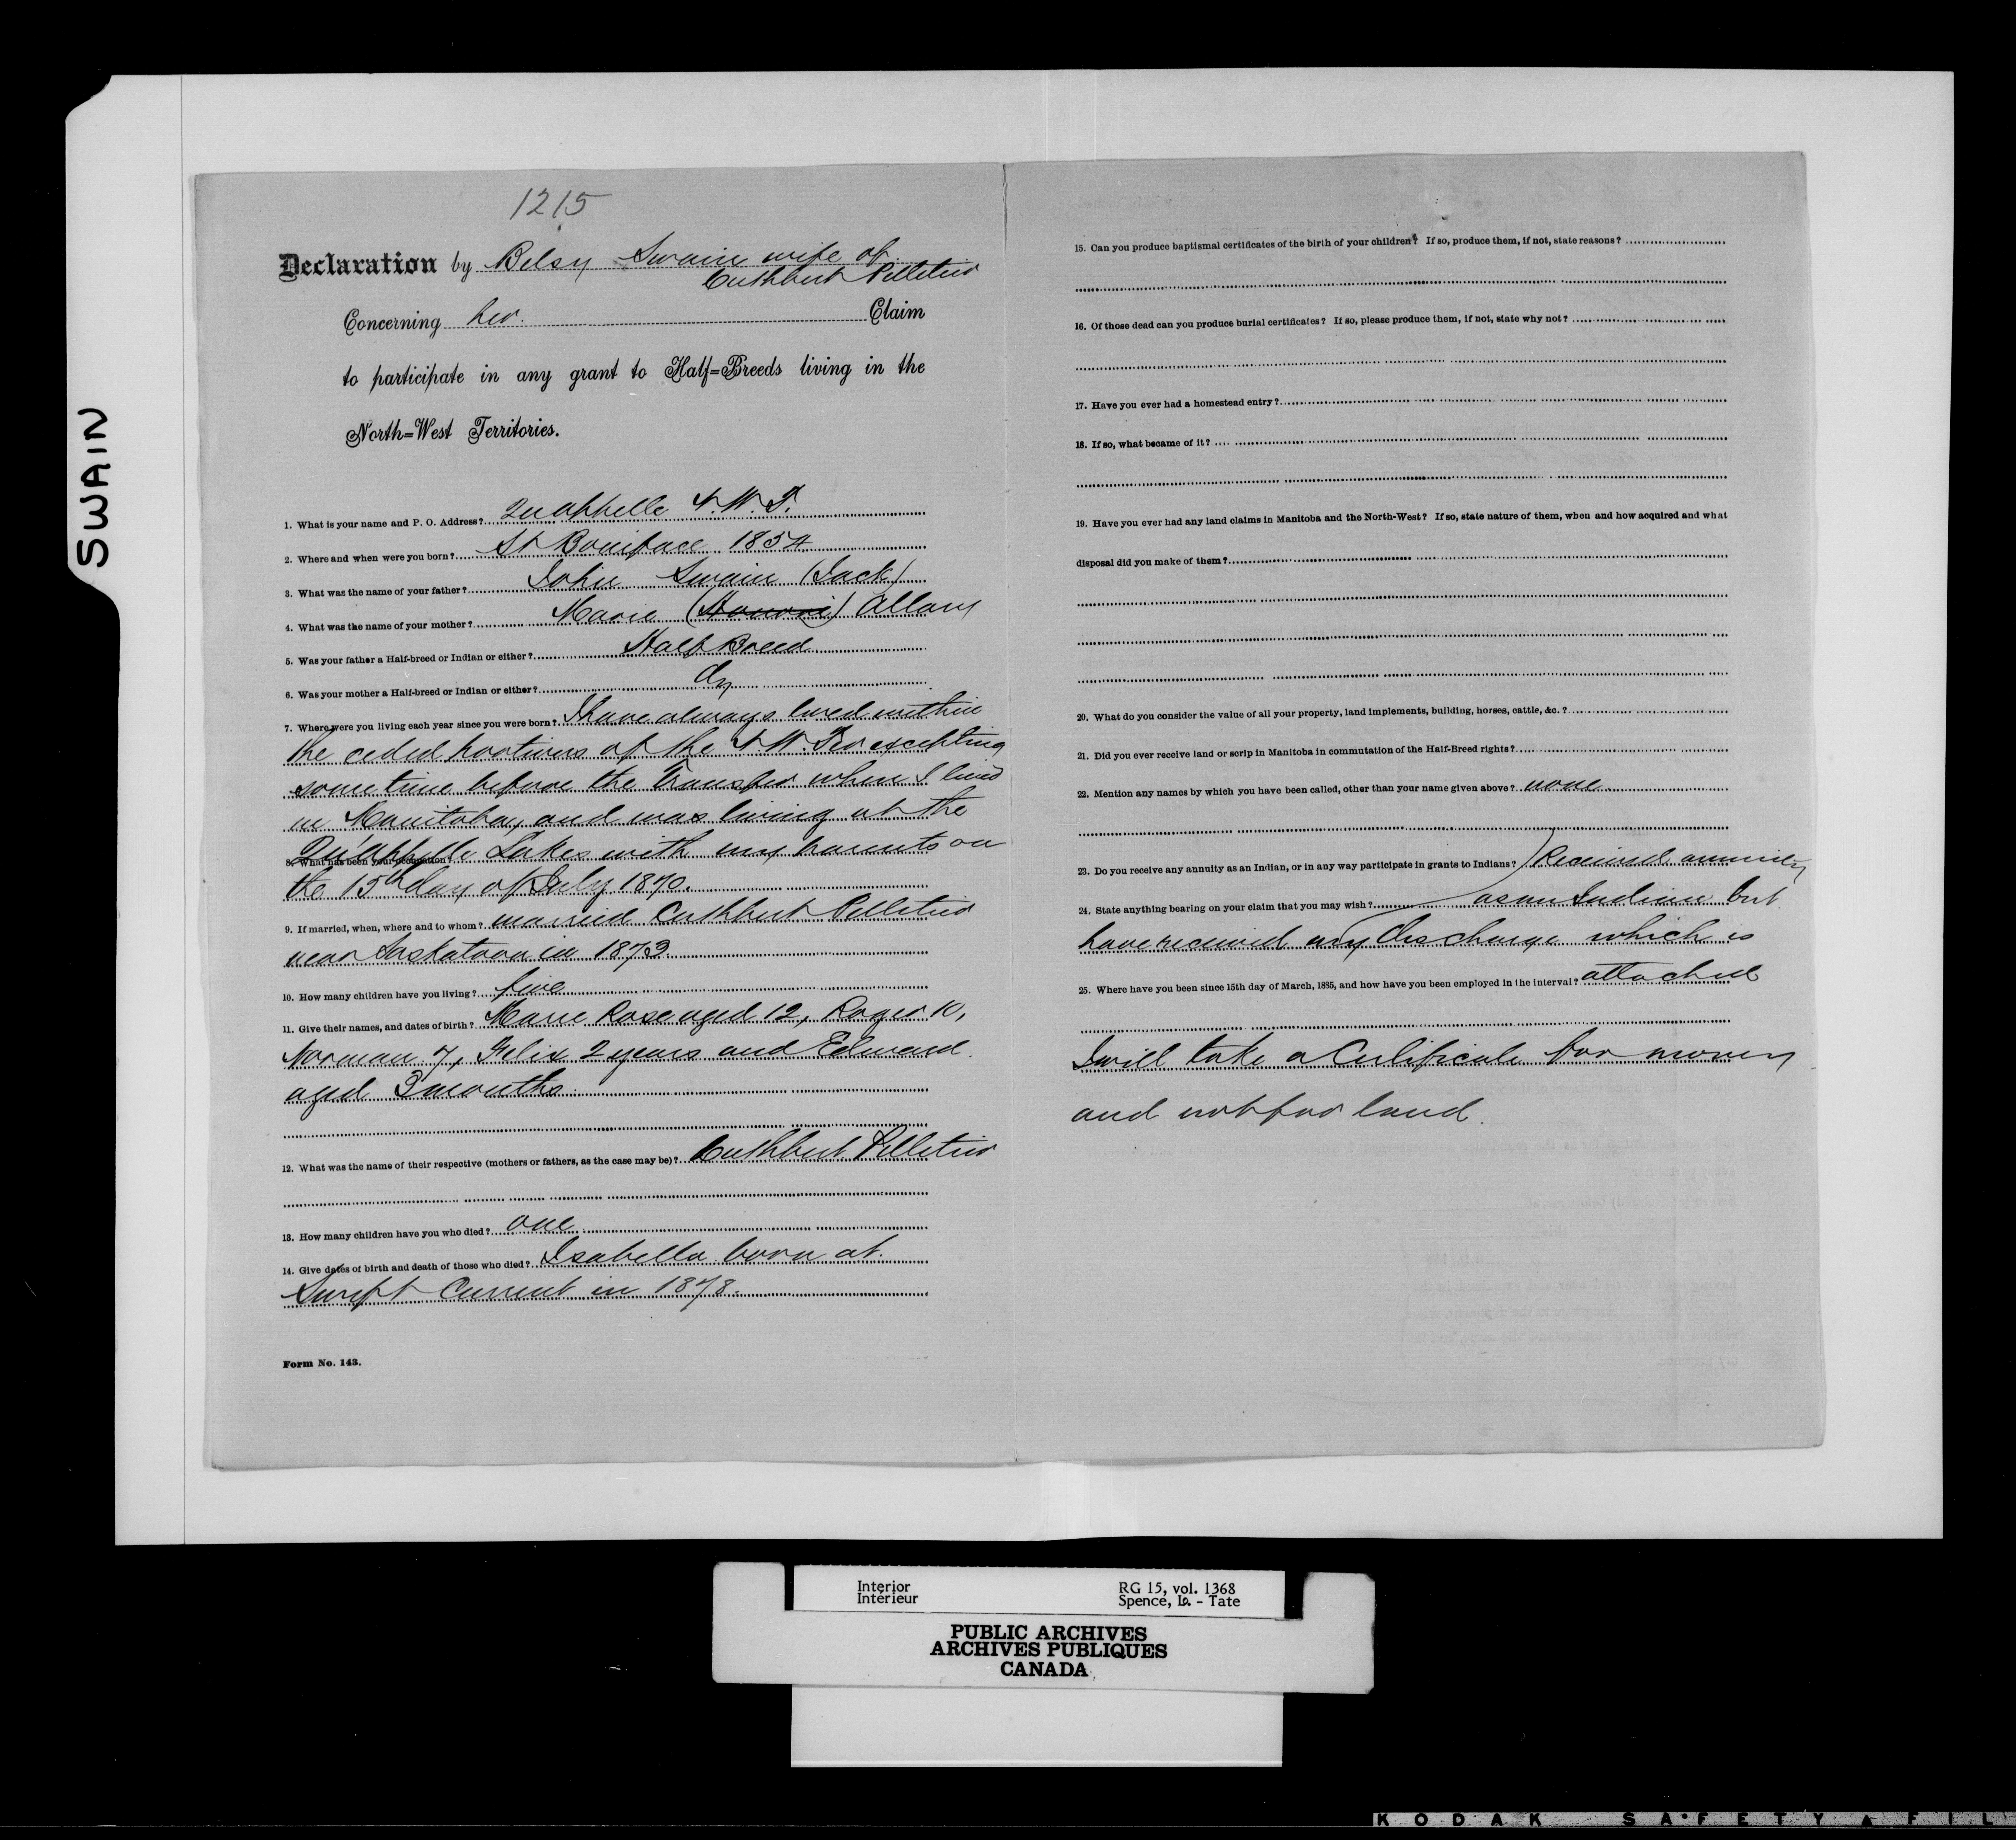 SWAIN
1215
Declaration by Betsy Swain wife of
Cuthbert Pelletier
Concerning her Claim
to participate in any grant to Half=Breeds living in the
North=West Territories.
1. What is your name and P. O. Address? Qu'appelle N.W.T.
2. Where and when were you born? St Boniface 1854
3. What was the name of your father? John Swain (Jack)
4. What was the name of your mother? Marie Allary
5. Was your father a Half-breed or Indian or either? Half Breed
6. Was your mother a Half-breed or Indian or either? do
7. Where were you living each year since you were born? I have always lived within
the ceded portions of the N.W. Ter excepting
some time before the Transfer when I lived
in Manitoba, and was living at the
8. What has been your occupation? Qu'appelle Lakes with my parents on
the 15th day of July 1870.
9. If married, when, where and to whom? married Cuthbert Pelletier
near Saskatoon in 1873.
10. How many children have you living? five
11. Give their names, and dates of birth? Marie Rose aged 12, Roger 10,
Norman 7, Felix 2 years and Edward
aged 3 months.
12. What was the name of their respective (mothers or fathers, as the case may be)? Cuthbert Pelletier
13. How many children have you who died? one
14. Give dates of birth and death of those who died? Isabella born at
Swift Current in 1878.
Form No. 143.
15. Can you produce baptismal certificates of the birth of your children? If so, produce them, if not, state reasons?
16. Of those dead can you produce burial certificates? If so, please produce them, if not, state why not?
17. Have you ever had a homestead entry?
18. If so, what became of it?
19. Have you ever had any land claims in Manitoba and the North-West? If so, state nature of them, when and how acquired and what
disposal did you make of them?
20. What do you consider the value of all your property, land implements, building, horses, cattle, &c. ?
21. Did you ever receive land or scrip in Manitoba in commutation of the Half-Breed rights?
22. Mention any names by which you have been called, other than your name given above? none
23. Do you receive any annuity as an Indian, or in any way participate in grants to Indians? Received annuity
24. State anything bearing on your claim that you may wish? as an Indian but
have received my discharge which is
25. Where have you been since 15th day of March, 1885, and how have you been employed in the interval? attached
I will take a Certificate for money
and not for land.
Interior
Intérieur
RG 15, vol. 1368
Spence, Lo. - Tate
PUBLIC ARCHIVES
ARCHIVES PUBLIQUES
CANADA
KODAK SAFETY FIL